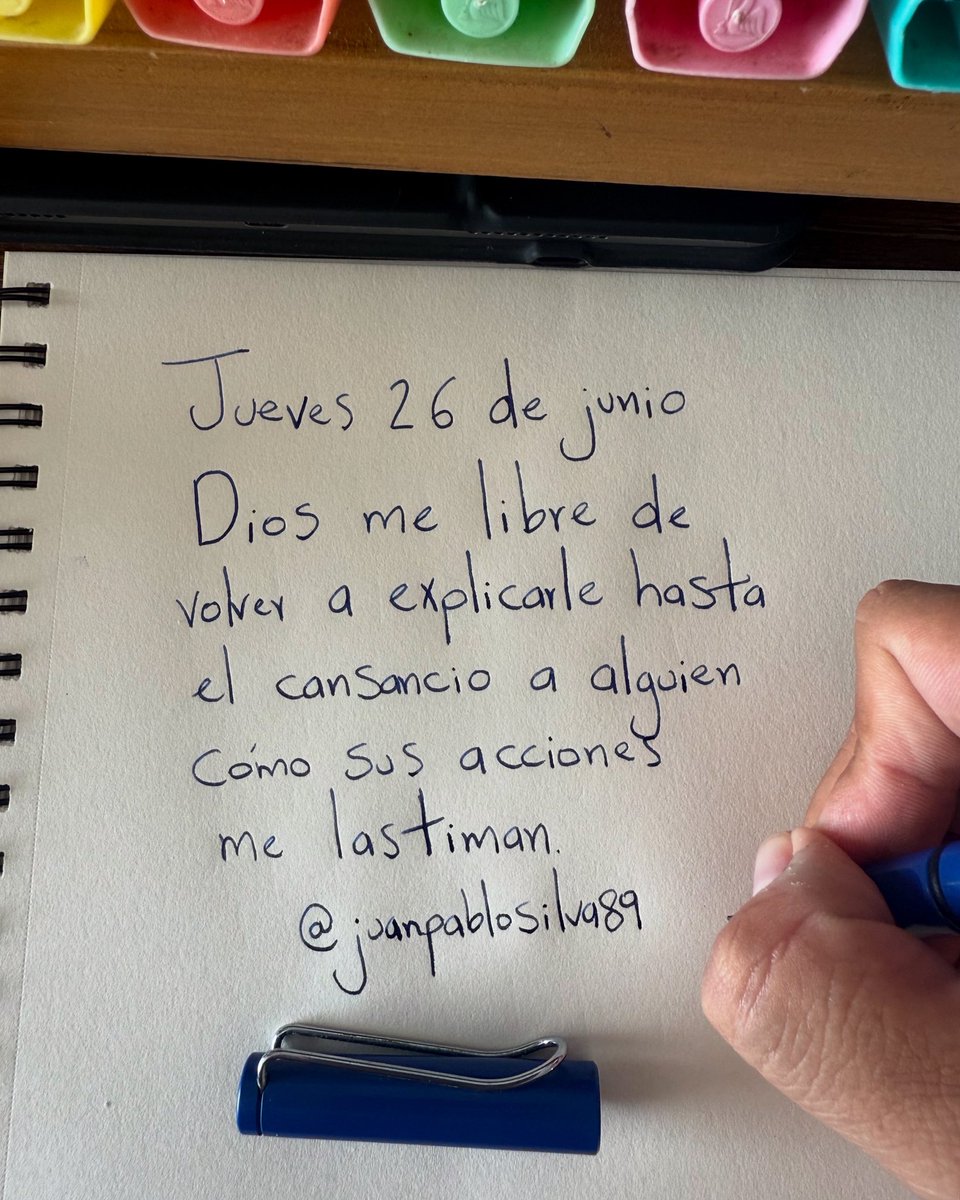 Jueves 26 de junio
Dios me libre de
volver a explicarle hasta
el cansancio a alguien
cómo sus acciones
me lastiman.
@juanpablosilva89